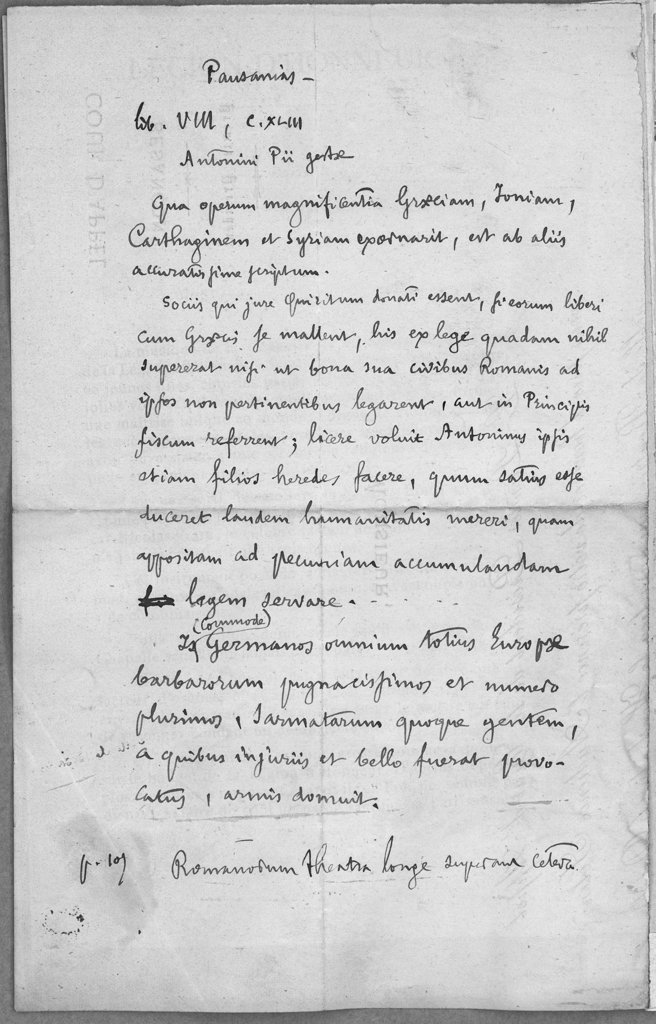 Pausanias –
lib. VIII, C. XLIII
Antonini Pii gestæ
Qua operum magnificentia Græciam, Ioniam,
Carthaginem et Syriam exornarit, est ab aliis
accuratissime scriptum.
Sociis qui jure Quiritum donati essent, si eorum liberi
cum Græcis se mallent, his ex lege quadam nihil
supererat nisi ut bona sua civibus Romanis ad
ipsos non pertinentibus legarent, aut in Principis
fiscum referrent; licere voluit Antoninus ipsis
etiam filios heredes facere, quum satius esse
duceret laudem humanitatis mereri, quam
appositam ad pecuniam accumulandam
legem servare. . . .
(Commode)
Is Germanos omnium totius Europæ
barbarorum pugnacissimos et numero
plurimos, Sarmatarum quoque gentem,
a quibus injuriis et bello fuerat provo-
catus, armis domuit.
Romanorum theatra longe superant cetera.